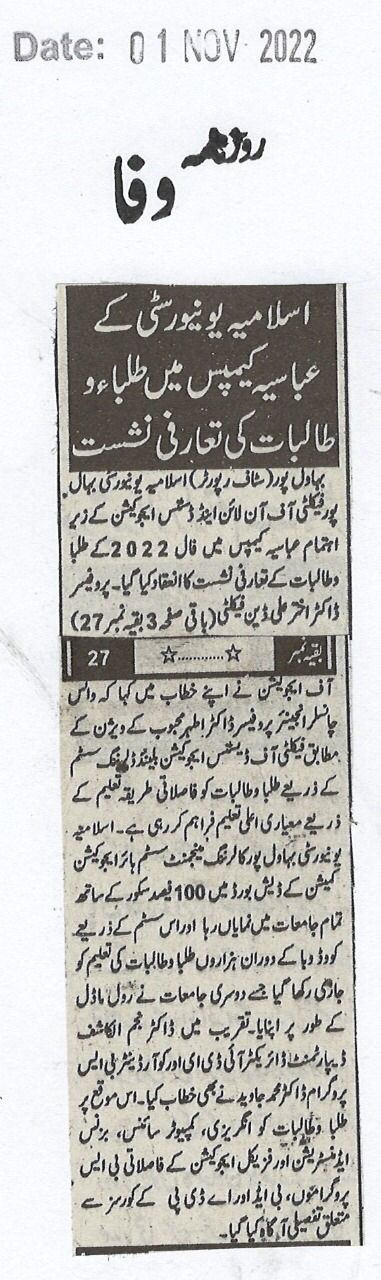 Date: 01 NOV 2022
روزنامہ
وفا
اسلامیہ یونیورسٹی کے
عباسیہ کیمپس میں طلباء و
طالبات کی تعارفی نشست
بہاول پور (سٹاف رپورٹر) اسلامیہ یونیورسٹی بہاول
پور فیکلٹی آف آن لائن اینڈ ڈسٹنس ایجوکیشن کے زیر
اہتمام عباسیہ کیمپس میں فال 2022 کے طلبا
و طالبات کے تعارفی نشست کا انعقاد کیا گیا۔ پروفیسر
ڈاکٹر اختر علی ڈین فیکلٹی (باقی صفحہ 3 بقیہ نمبر 27)
بقیہ نمبر ☆............☆ 27
آف ایجوکیشن نے اپنے خطاب میں کہا کہ وائس
چانسلر انجینئر پروفیسر ڈاکٹر اطہر محبوب کے ویژن کے
مطابق فیکلٹی آف ڈسٹنس ایجوکیشن بلینڈڈ لرننگ سسٹم
کے ذریعے طلبا و طالبات کو فاصلاتی طریقہ تعلیم کے
ذریعے معیاری اعلی تعلیم فراہم کر رہی ہے۔ اسلامیہ
یونیورسٹی بہاول پور کا لرننگ مینجمنٹ سسٹم ہائر ایجوکیشن
کمیشن کے ڈیش بورڈ میں 100 فیصد سکور کے ساتھ
تمام جامعات میں نمایاں رہا اور اس سسٹم کے ذریعے
کووڈ وبا کے دوران ہزاروں طلبا و طالبات کی تعلیم کو
جاری رکھا گیا جسے دوسری جامعات نے رول ماڈل
کے طور پر اپنایا۔ تقریب میں ڈاکٹر نجم الکاشف
ڈیپارٹمنٹ ڈائریکٹر آئی ڈی ای اور کوآرڈینٹر بی ایس
پروگرام ڈاکٹر محمد جاوید نے بھی خطاب کیا۔ اس موقع پر
طلبا و طالبات کو انگریزی، کمپیوٹر سائنس، بزنس
ایڈمنسٹریشن اور فزیکل ایجوکیشن کے فاصلاتی بی ایس
پروگراموں، بی ایڈ اور اے ڈی پی کے کورسز سے
متعلق تفصیلی آگاہ کیا گیا۔